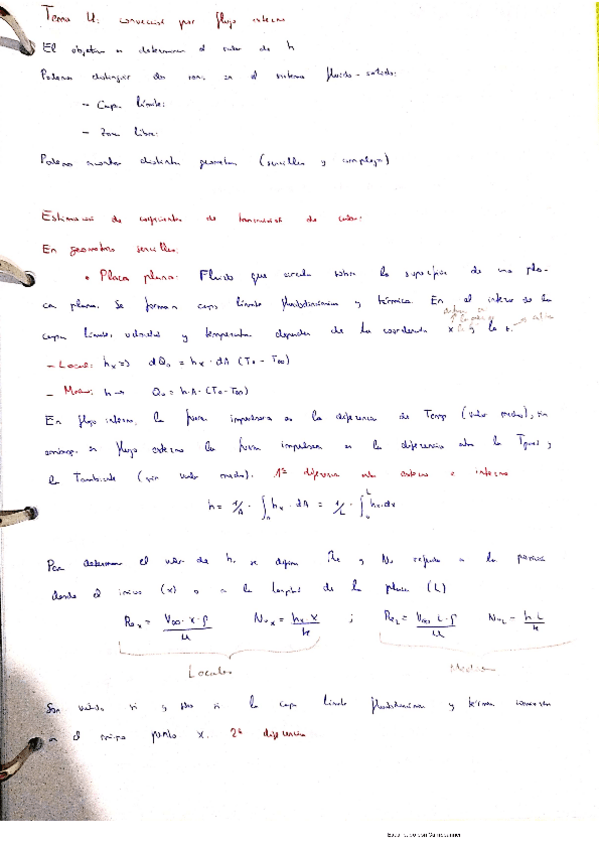 Tema 4: convección por flujo externo
El objetivo es determinar el valor de h
Podemos distinguir dos zonas en el sistema fluido-solido:
- Capa límite:
- Zona libre:
Podemos encontrar distintas geometrías (sencillas y complejas)
Estimación de coeficientes de transmisión de calor:
En geometrías sencillas:
• Placa plana: Fluido que circula sobre la superficie de una pla-
ca plana. Se forman capa límite fluidodinámica y térmica. En el interior de la
capa límite, velocidad y temperatura dependen de la coordenada x y la r.
- Local: hx => dQ₀ = hx · dA (T₀ - T∞)
- Medio: h => Q₀ = h·A·(T₀-T∞)
En flujo interno, la fuerza impulsora es la diferencia de Temp (valor medio), sin
embargo en flujo externo la fuerza impulsora es la diferencia entre la Tpared y
la Tambiente (sin valor medio). 1ª diferencia entre externo e interno
h = 1/A · ∫A hx · dA = 1/L · ∫₀ᴸ hx·dx
Para determinar el valor de h, se define Re y Nu referido a la posición
desde el inicio (x) o a la longitud de la placa (L)
Reₓ = V∞·x·ρ/μ Nuₓ = hx·x/k ; Re_L = V∞ L·ρ/μ Nu_L = h L/k
Locales Medios
Son validos si y solo si la capa límite fluidodinámica y térmica comienzan
en el mismo punto x. 2ª diferencia